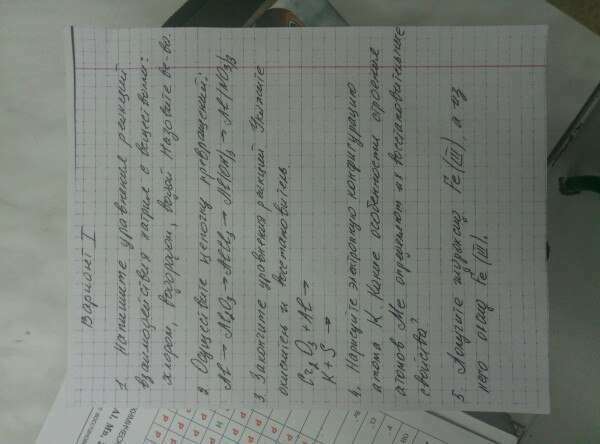 Вариант I
1 Напишите уравнения реакций
взаимодействия натрия с веществами:
хлором, водородом, водой Назовите в-ва.
2 Осуществите цепочку превращений:
Al → Al2O3 → AlCl3 → Al(OH)3 → Al(NO3)3
3. Закончите уравнения реакций Укажите
окислитель и восстановитель
Cr2O3 + Al →
K + S →
4. Нарисуйте электронную конфигурацию
атома К. Какие особенности строения
атомов Ме определяют их восстановительные
свойства?
5. Получите гидроксид Fe (III), а из
него оксид Fe (III).